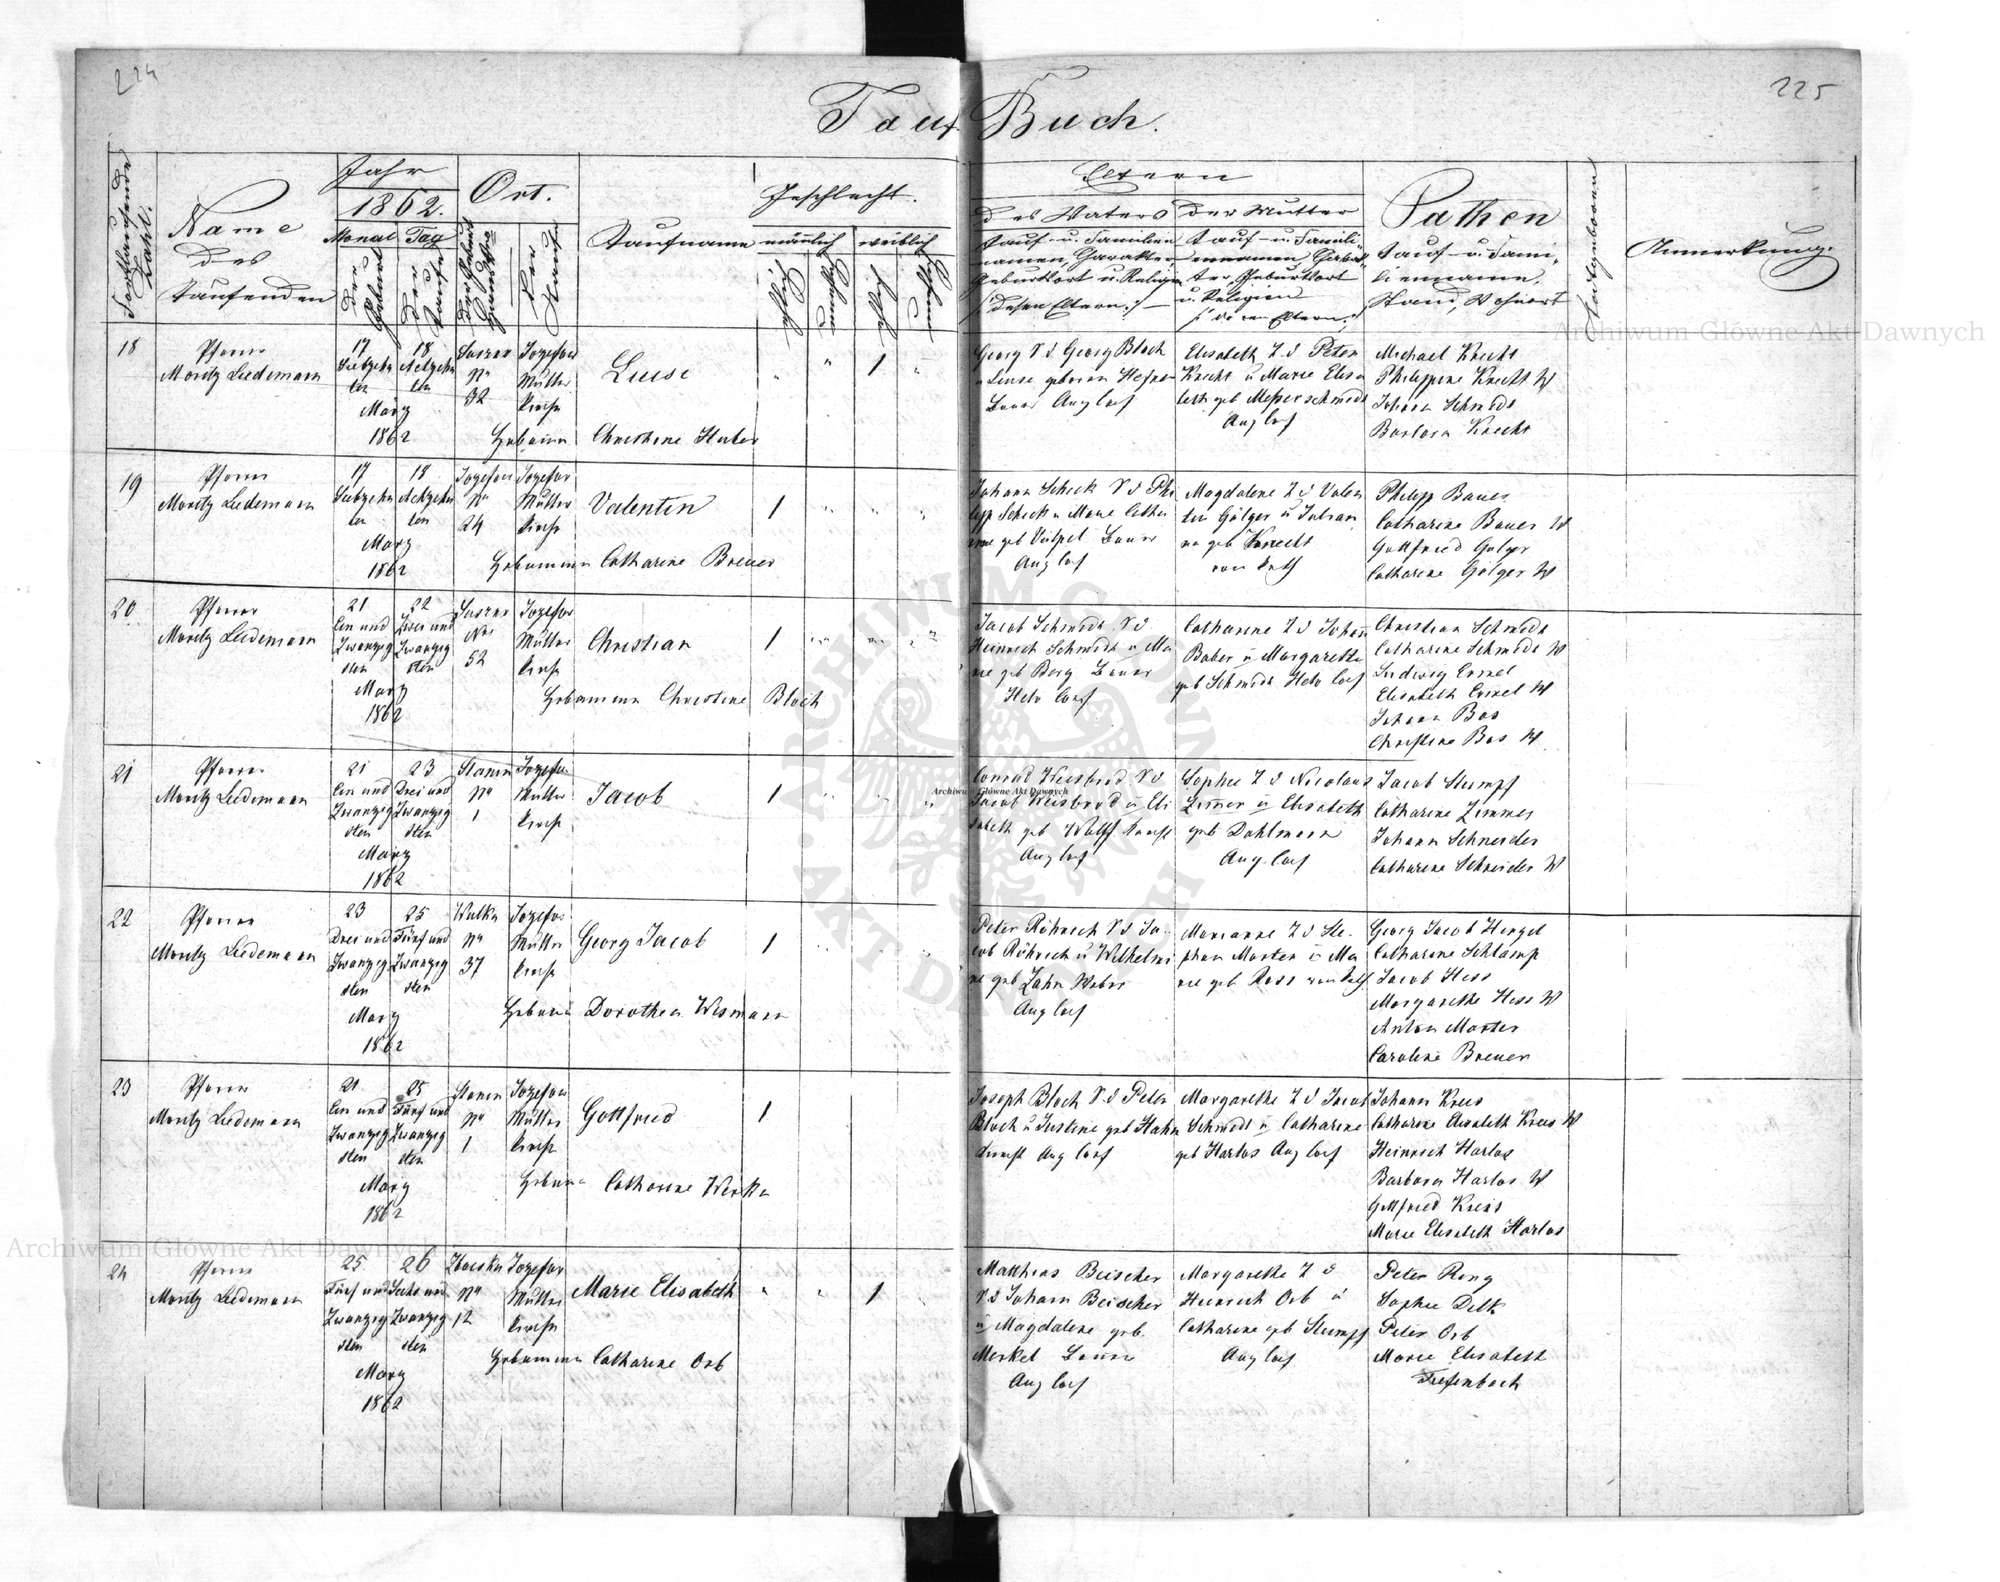 224
225
Tauf Buch.
Fortlaufende Zahl.
Name
des
Taufenden
Jahr
1862.
Monat Tag
der Geburt
der Taufe
Ort.
der Taufe
Taufname
Geschlecht.
männlich weiblich
Eltern
des Vaters der Mutter
Tauf- u. Familien
namen, Charakter,
Geburtsort u. Religion
/: desen Eltern :/
Tauf- u. Famili-
ennamen, Charak-
ter, Geburtsort
u. Religion
/: deren Eltern :/
Pathen
Tauf- u. Fami-
lienname,
Stand, Wohnort
Anmerkung.
18
Pfarrer
Moritz Liedemann
17
Siebzehn
ten
18
Achtzehn
ten
März
1862
No
32
Jozefow
Mutter
kirche
Luise
1
Christine Huber
Georg S d Georg Bloch
u Luise geboren
Bauer Aug Conf
Elisabeth T d Peter
Knecht u Marie Elisa
beth geb Messerschmidt
Aug Conf
Michael Knecht
Philippine Knecht W
Johann Schmidt
Barbara Knecht
19
Pfarrer
Moritz Liedemann
17
Siebzehn
ten
18
Achtzehn
ten
März
1862
Jozefow
No
24
Jozefow
Mutter
kirche
Valentin
1
Hebamme Catharine Breuer
Johann Schick S d Phi
lipp Schick u Marie Catha
rine geb Bauer
Aug Conf
Magdalene T d Valen
tin Gölger u Julian
na geb Knecht
Philipp Bauer
Catharine Bauer W
Gottfried Golger
Catharine Gölger W
20
Pfarrer
Moritz Liedemann
21
Ein und
Zwanzig
sten
22
Zwei und
Zwanzig
sten
März
1862
No
52
Jozefow
Mutter
kirche
Christian
1
Hebamme Christine Bloch
Jacob Schmidt S d
Heinrich Schmidt u Ma
rie geb Berg Bauer
Helv Conf
Catharine T d Johann
Baber u Margarethe
geb Schmidt Helv Conf
Christian Schmidt
Catharine Schmidt W
Ludwig Emel
Elisabeth Emel W
Johann Bas
Christine Bas W
21
Pfarrer
Moritz Liedemann
21
Ein und
Zwanzig
sten
23
Drei und
Zwanzig
sten
März
1862
Stanin
No
1
Jozefow
Mutter
kirche
Jacob
1
Conrad Weisbrod S d
Jacob Weisbrod u Eli
sabeth geb Wolff
Aug Conf
Sophie T d Nicolaus
Zimmer u Elisabeth
geb Dahlmann
Aug. Conf
Jacob Stumpf
Catharine Zimmer
Johann Schneider
Catharine Schneider W
22
Pfarrer
Moritz Liedemann
23
Drei und
Zwanzig
sten
25
Fünf und
Zwanzig
sten
März
1862
Wulka
No
37
Jozefow
Mutter
kirche
Georg Jacob
1
Dorothea Wismann
Peter Röhrich S d Ja-
cob Röhrich u Wilhelmi
ne geb Zahn Weber
Aug Conf
Marianne T d Ste-
phan Marter u Ma
rie geb Ross
Georg Jacob Hergel
Catharine Schlamp
Jacob Hess
Margarethe Hess W
Anton Marter
Caroline Breuer
23
Pfarrer
Moritz Liedemann
21
Ein und
Zwanzig
sten
25
Fünf und
Zwanzig
sten
März
1862
Stanin
No
1
Jozefow
Mutter
kirche
Gottfried
1
Catharine
Joseph Bloch S d Peter
Bloch u Justine geb Hahn
Aug Conf
Margarethe T d Jacob
Schmidt u Catharine
geb Harlos Aug Conf
Johann Kreis
Catharine Elisabeth Kreis W
Heinrich Harlos
Barbara Harlos W
Gottfried Kreis
Marie Elisabeth Harlos
24
Pfarrer
Moritz Liedemann
25
Fünf und
Zwanzig
sten
26
Sechs und
Zwanzig
sten
März
1862
No
12
Jozefow
Mutter
kirche
Marie Elisabeth
1
Hebamme Catharine Orb
Matthias Beischer
S d Johann Beischer
u Magdalene geb.
Merkel Bauer
Aug Conf
Margarethe T d
Heinrich Orb u
Catharine geb Stumpf
Aug Conf
Peter Ring
Sophie Dilk
Peter Orb
Marie Elisabeth
Tiefenbach
Archiwum Główne Akt Dawnych
Archiwum Główne Akt Dawnych
Archiwum Główne Akt Dawnych
ARCHIWUM GŁÓWNE AKT DAWNYCH